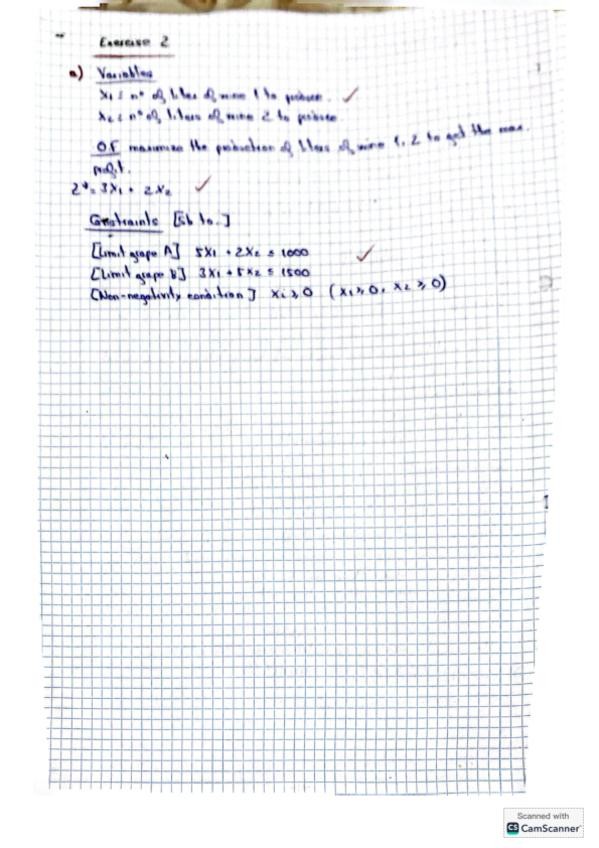 Exercise 2
a) Variables
X1 = nº of liters of wine 1 to produce.
X2 = nº of liters of wine 2 to produce
OF maximize the production of liters of wine 1, 2 to get the max.
profit.
Z*= 3X1 + 2X2
Constraints [Sb to..]
[Limit grape A] 5X1 + 2X2 ≤ 1000
[Limit grape B] 3X1 + 5X2 ≤ 1500
[Non-negativity condition] Xi ≥ 0 (X1 ≥ 0, X2 ≥ 0)
Scanned with
CS CamScanner